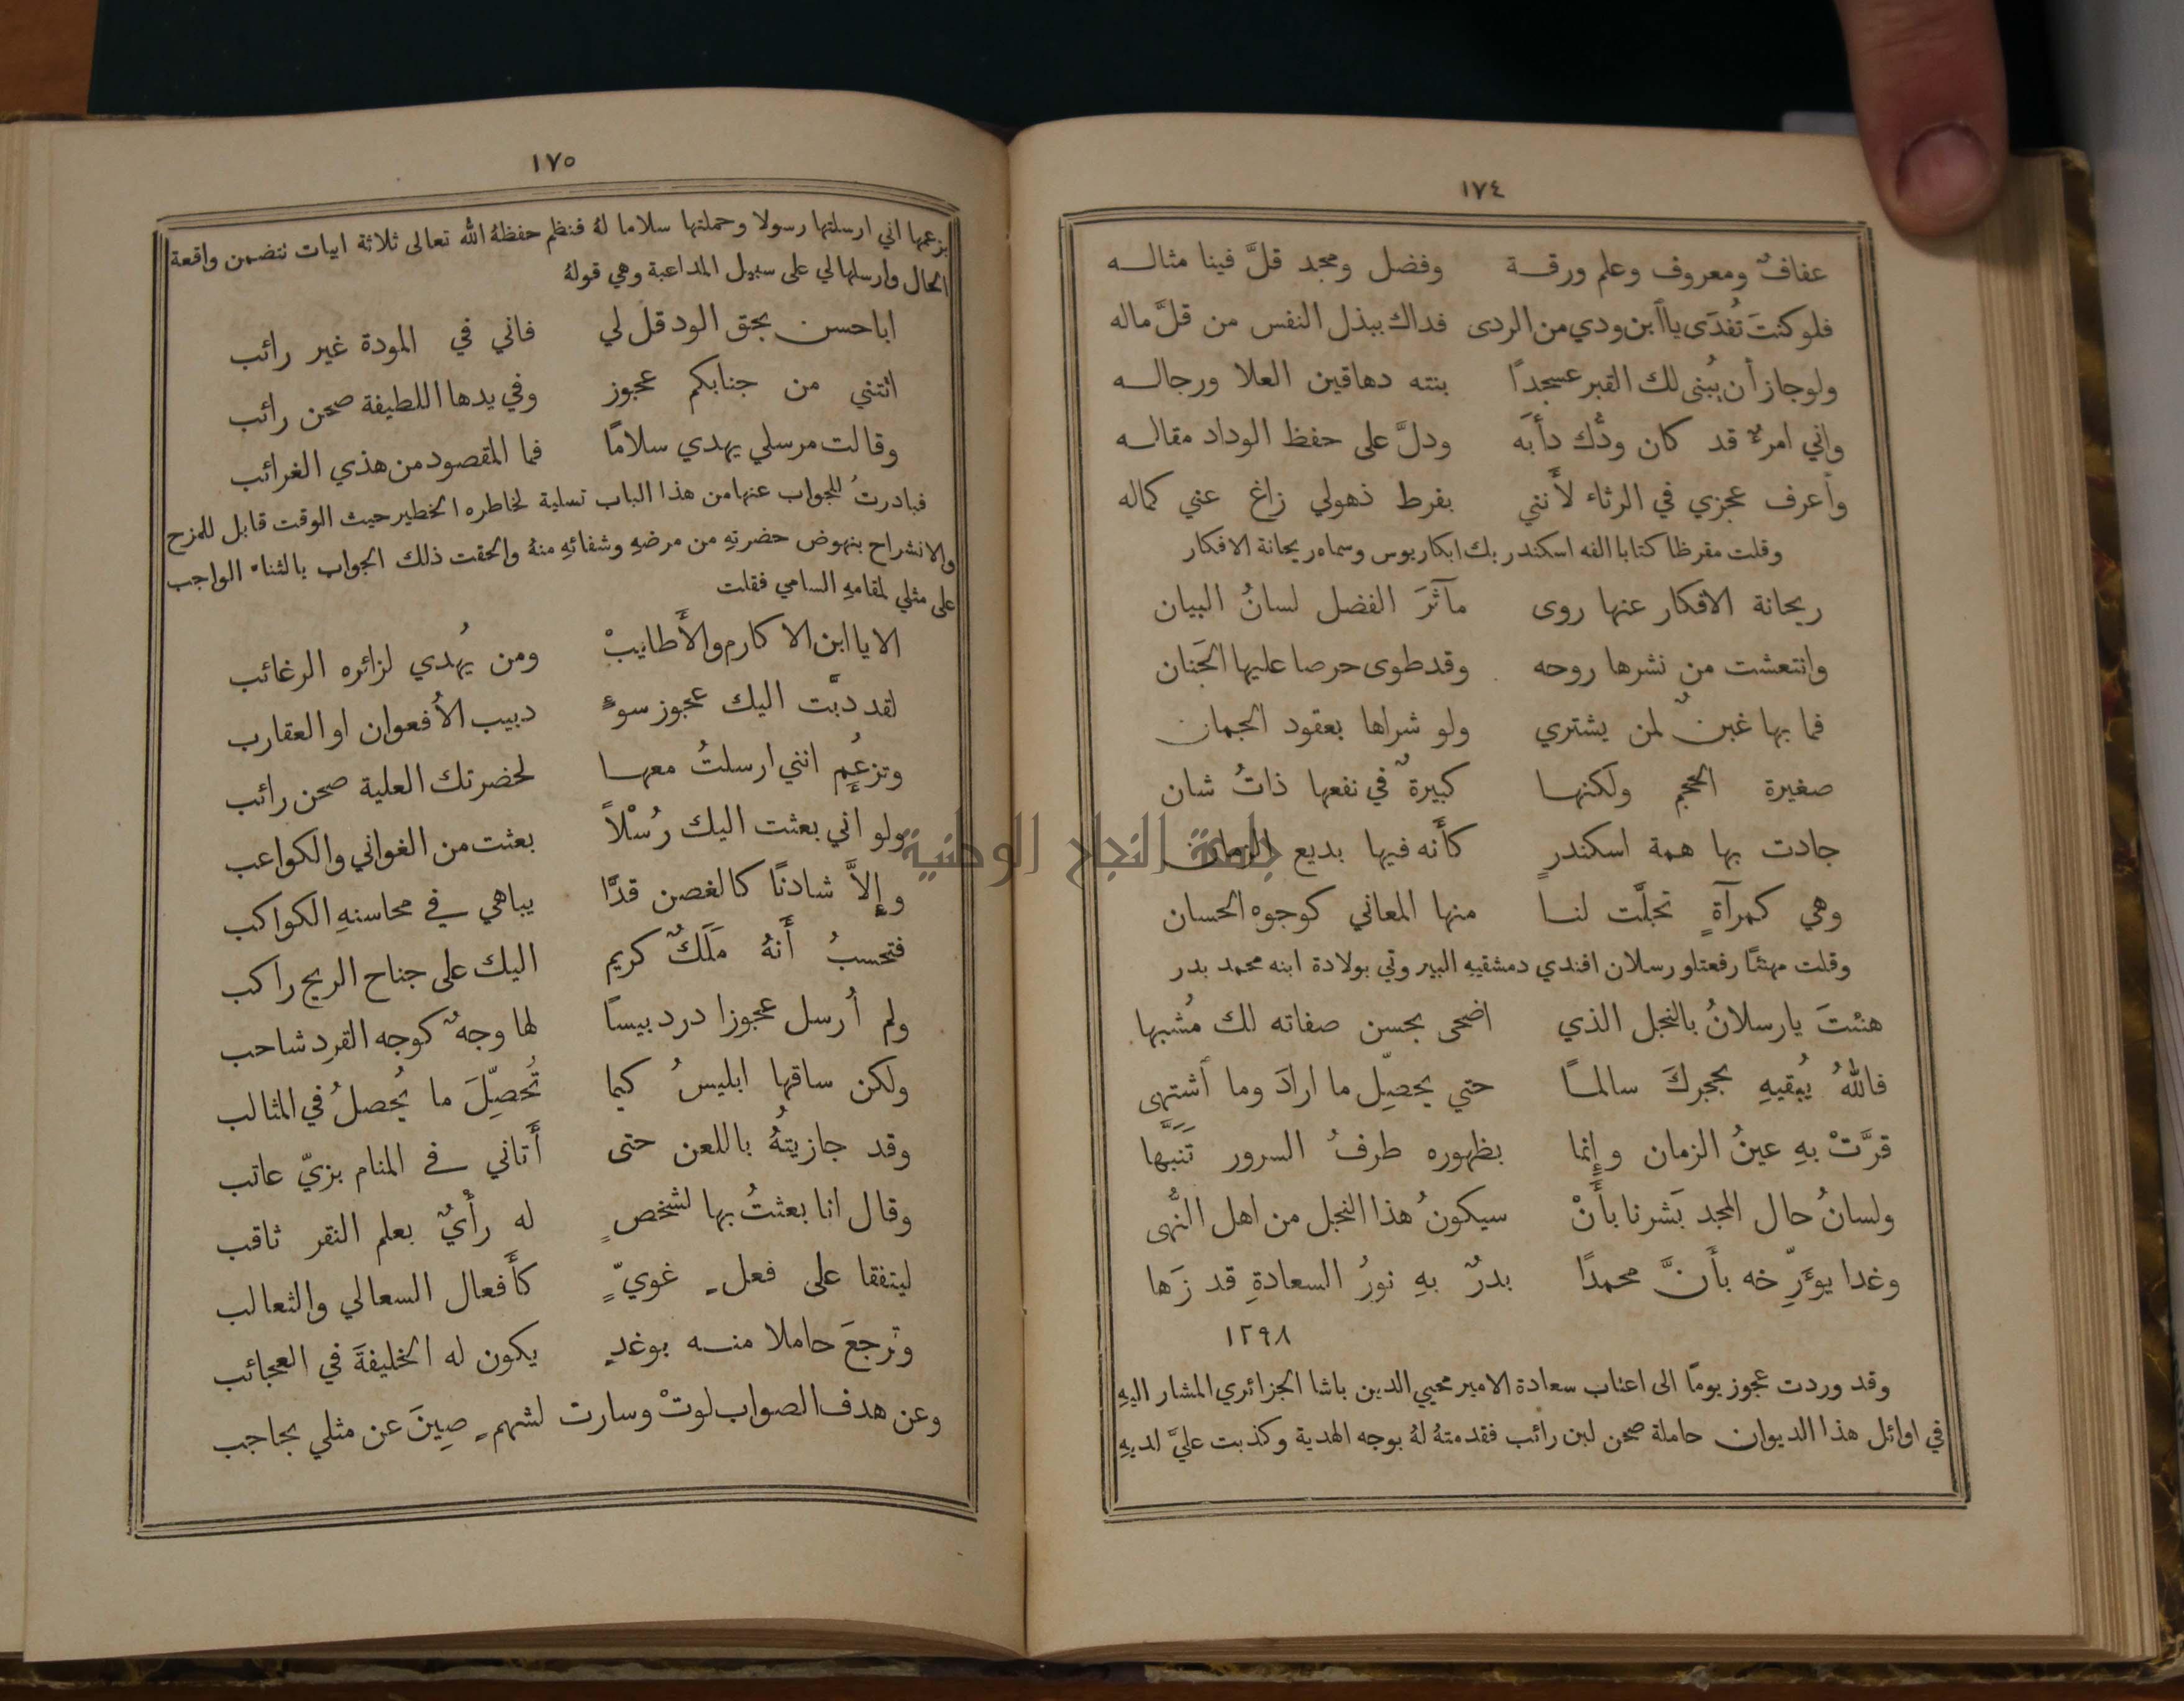 ١٧٤
عفافٌ ومعروف وعلم ورقة وفضل ومجد قلَّ فينا مثاله
فلوكنتَ تُفدَى ياأبن ودي من الردى فداك ببذل النفس من قلَّ ماله
ولوجاز أن يُبنى لك القبر عسجدًا بنته دهاقين العلا ورجاله
واني امرءٌ قد كان ودُّك دأبَه ودلَّ على حفظ الوداد مقاله
وأعرف عجزي في الرثاء لأنني بفرط ذهولي زاغ عني كماله
وقلت مقرظا كتابا الفه اسكندر بك ابكاريوس وسماه ريحانة الافكار
ريحانة الافكار عنها روى مآثرَ الفضل لسانُ البيان
وانتعشت من نشرها روحه وقد طوى حرصا عليها الجَنان
فما بها غبنٌ لمن يشتري ولو شراها بعقود الجمان
صغيرة الحجم ولكنها كبيرةٌ في نفعها ذاتُ شان
جادت بها همة اسكندرٍ كأنه فيها بديع الزمان
وهي كمرآةٍ تجلَّت لنا منها المعاني كوجوه الحسان
وقلت مهنئًا رفعتلو رسلان افندي دمشقيه البيروتي بولادة ابنه محمد بدر
هنئتَ يارسلانُ بالنجل الذي اضحى بحسن صفاته لك مُشبها
فاللهُ يُبقيهِ بحجركَ سالمًا حتي يحصِّل ما ارادَ وما أشتهى
قرَّتْ بهِ عينُ الزمان وإنما بظهوره طرفُ السرور تَنَبَّها
ولسانُ حال المجد بَشرنا بأَنْ سيكونُ هذا النجل من اهل النُّهى
وغدا يوَّرِّخه بأَنَّ محمدًا بدرٌ بهِ نورُ السعادةِ قد زَها
١٢٩٨
وقد وردت عجوز يومًا الى اعتاب سعادة الامير محيي الدين باشا الجزائري المشار اليهِ
في اوائل هذا الديوان حاملة صحن لبن رائب فقدمتهُ لهُ بوجه الهدية وكذبت عليَّ لديهِ
١٧٥
بزعمها اني ارسلتها رسولا وحملتها سلاما لهُ فنظم حفظهُ الله تعالى ثلاثة ابيات تتضمن واقعة
الحال وارسلها لي على سبيل المداعبة وهي قولهُ
اباحسن بحق الود قل لي فاني في المودة غير رائب
اتتني من جنابكم عجوز وفي يدها اللطيفة صحن رائب
وقالت مرسلي يهدي سلامًا فما المقصود من هذي الغرائب
فبادرتُ للجواب عنها من هذا الباب تسلية لخاطره الخطير حيث الوقت قابل للمزح
والانشراح بنهوض حضرتهِ من مرضهِ وشفائهِ منهُ والحقت ذلك الجواب بالثناء الواجب
على مثلي لمقامهِ السامي فقلت
الا ياابن الاكارم والأَطايبْ ومن يُهدي لزائره الرغائب
لقد دبَّت اليك عجوز سوءٍ دبيب الأُفعوان او العقارب
وتزعُم انني ارسلتُ معها لحضرتك العلية صحن رائب
ولو اني بعثت اليك رُسْلاً بعثت من الغواني والكواعب
وإِلاَّ شادنًا كالغصن قدًّا يباهي في محاسنهِ الكواكب
فتحسبُ أَنهُ مَلَكٌ كريم اليك على جناح الريح راكب
ولم أُرسل عجوزا دردبيسًا لها وجهٌ كوجه القرد شاحب
ولكن ساقها ابليسُ كيما تُحصِّلَ ما يُحصلُ في المثالب
وقد جازيتهُ باللعن حتى أَتاني في المنام بزيّ عاتب
وقال انا بعثتُ بها لشخصٍ له رأْيٌ بعلم النقر ثاقب
ليتفقا على فعلٍ غويّ كأَفعال السعالي والثعالب
وترجعَ حاملا منه بوغدٍ يكون له الخليفةَ في العجائب
وعن هدف الصواب لوتْ وسارت لشهمٍ صِينَ عن مثلي بحاجب
جامعة النجاح الوطنية